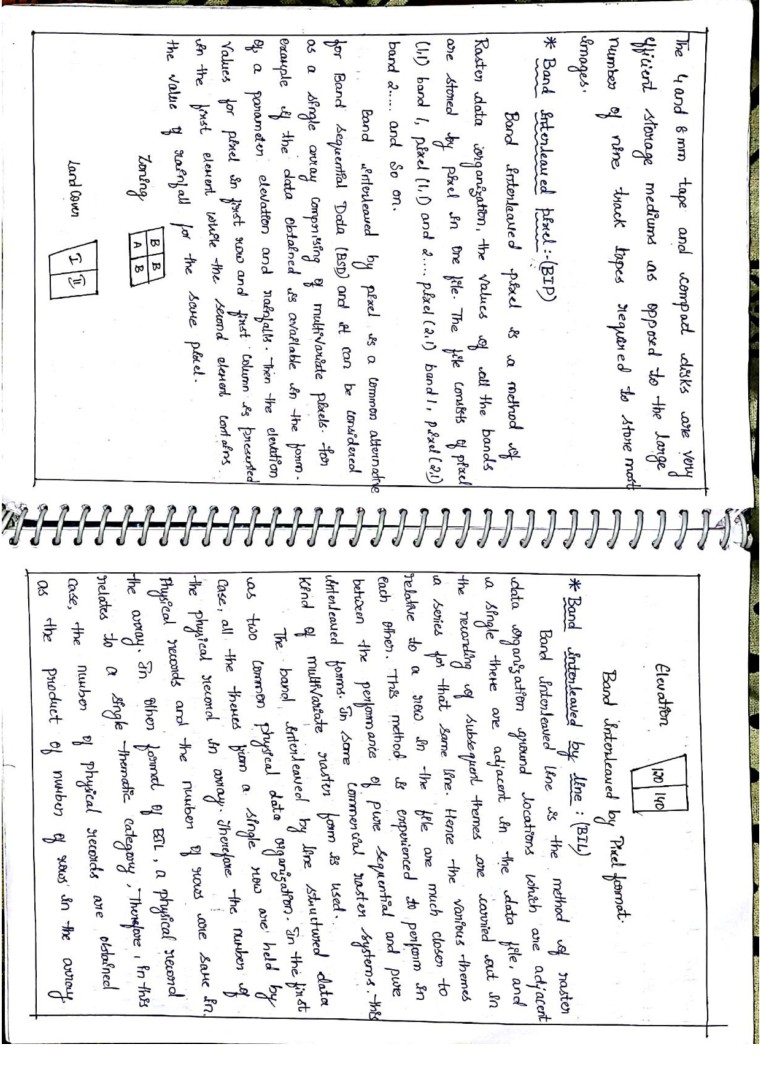 The 4 and 8 mm tape and compact disks are very
efficient storage mediums as opposed to the large
number of nine track tapes required to store most
images.
* Band interleaved pixel :- (BIP)
Band interleaved pixel is a method of
Raster data organization, the values of all the bands
are stored by pixel in one file. The file consists of pixel
(1,1) band 1, pixel (1,1) and 2..., pixel (2,1) band 1, pixel (2,1)
band 2..... and so on.
Band interleaved by pixel is a common alternative
for Band sequential Data (BSD) and it can be considered
as a single array comprising of multivariate pixels. for
example if the data obtained is available in the form.
of a parameter elevation and rainfalls. Then the elevation
values for pixel in first row and first column is presented
in the first element while the second element contains
the value of rainfall for the same pixel.
Zoning
B B
A B
Land cover
I II
Elevation
120 140
Band interleaved by Pixel format.
* Band interleaved by line : (BIL)
Band interleaved line is the method of raster
data organization ground locations which are adjacent
a single there are adjacent in the data file, and
the recording of subsequent themes are carried out in
a series for that same line. Hence the various themes
relative to a row in the file are much closer to
each other. This method is experienced to perform in
between the performance of pure sequential and pure
interleaved forms. In some commercial raster systems. this
kind of multivariate raster form is used..
The band, interleaved by line structured data
as two common physical data organization. In the first
case, all the themes from a single row are held by
the physical record in array. Therefore the number of
Physical records and the number of rows are same in.
the array. In other format of BIL, a physical record
relates to a single thematic category, Therefore, in this
case, the number of physical records are obtained
as the product of number of rows in the array